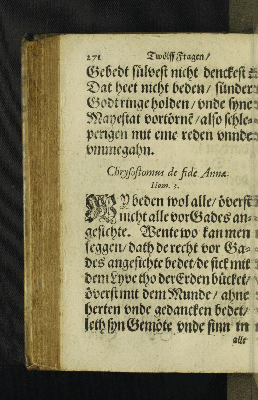 271 Twölff Fragen/
Gebedt sülvest nicht denckest
Dat heet nicht beden/ sünder
Godt ringe holden/ vnde syne
Mayestat vortörnē/ also schle-
perigen mit eme reden vnnde
vmmegahn.
Chrysostomus de fide Annæ
Hom. 2.
WY beden wol alle/ överst
nicht alle vor Gades an-
gesichte. Wente wo kan men
seggen/ dath de recht vor Ga-
des angesichte bedet/ de sick mit
dem Lyve tho der Erden bücket/
överst mit dem Munde/ ahne
herten vnde gedancken bedet/
leth syn Gemöte vnde sinn in
alle